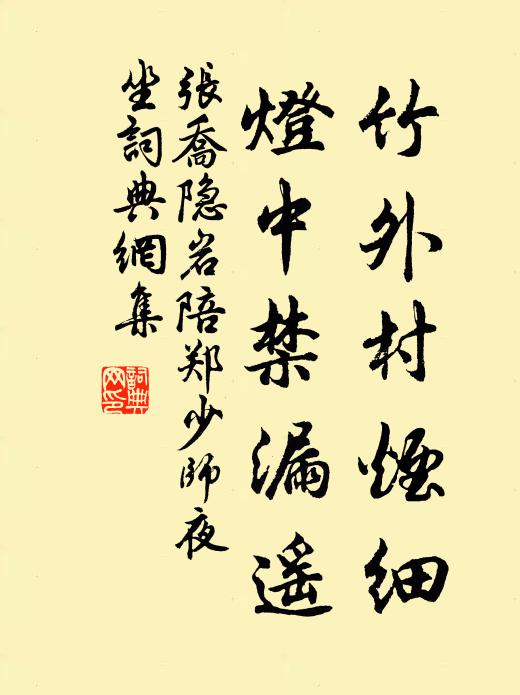 竹外村煙細
燈中禁漏遥
張喬隐岩陪郑少師夜
坐詞典網集
詞典
网印